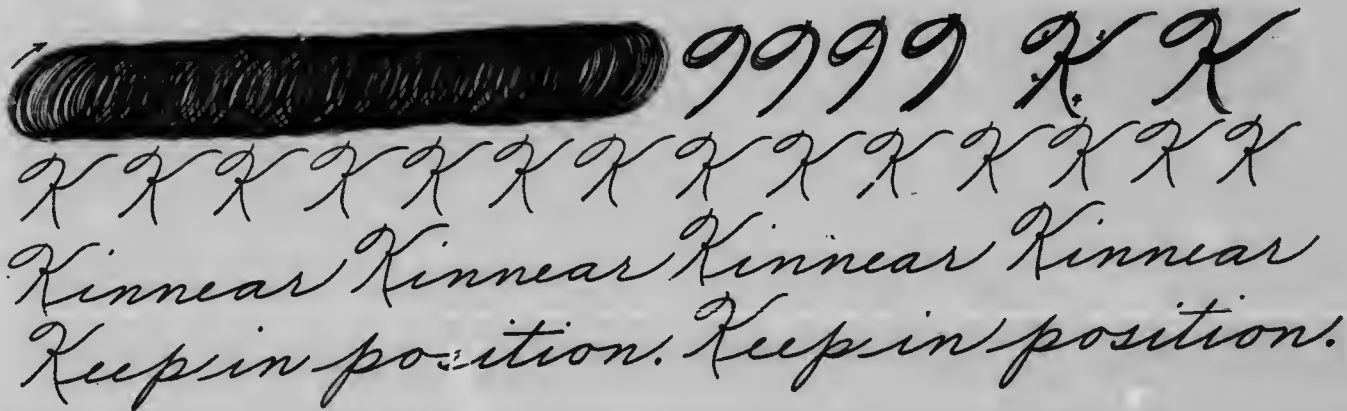 9 9 9 9 K K
K K K K K K K K K K K K K K
Kinnear Kinnear Kinnear Kinnear
Keep in position. Keep in position.